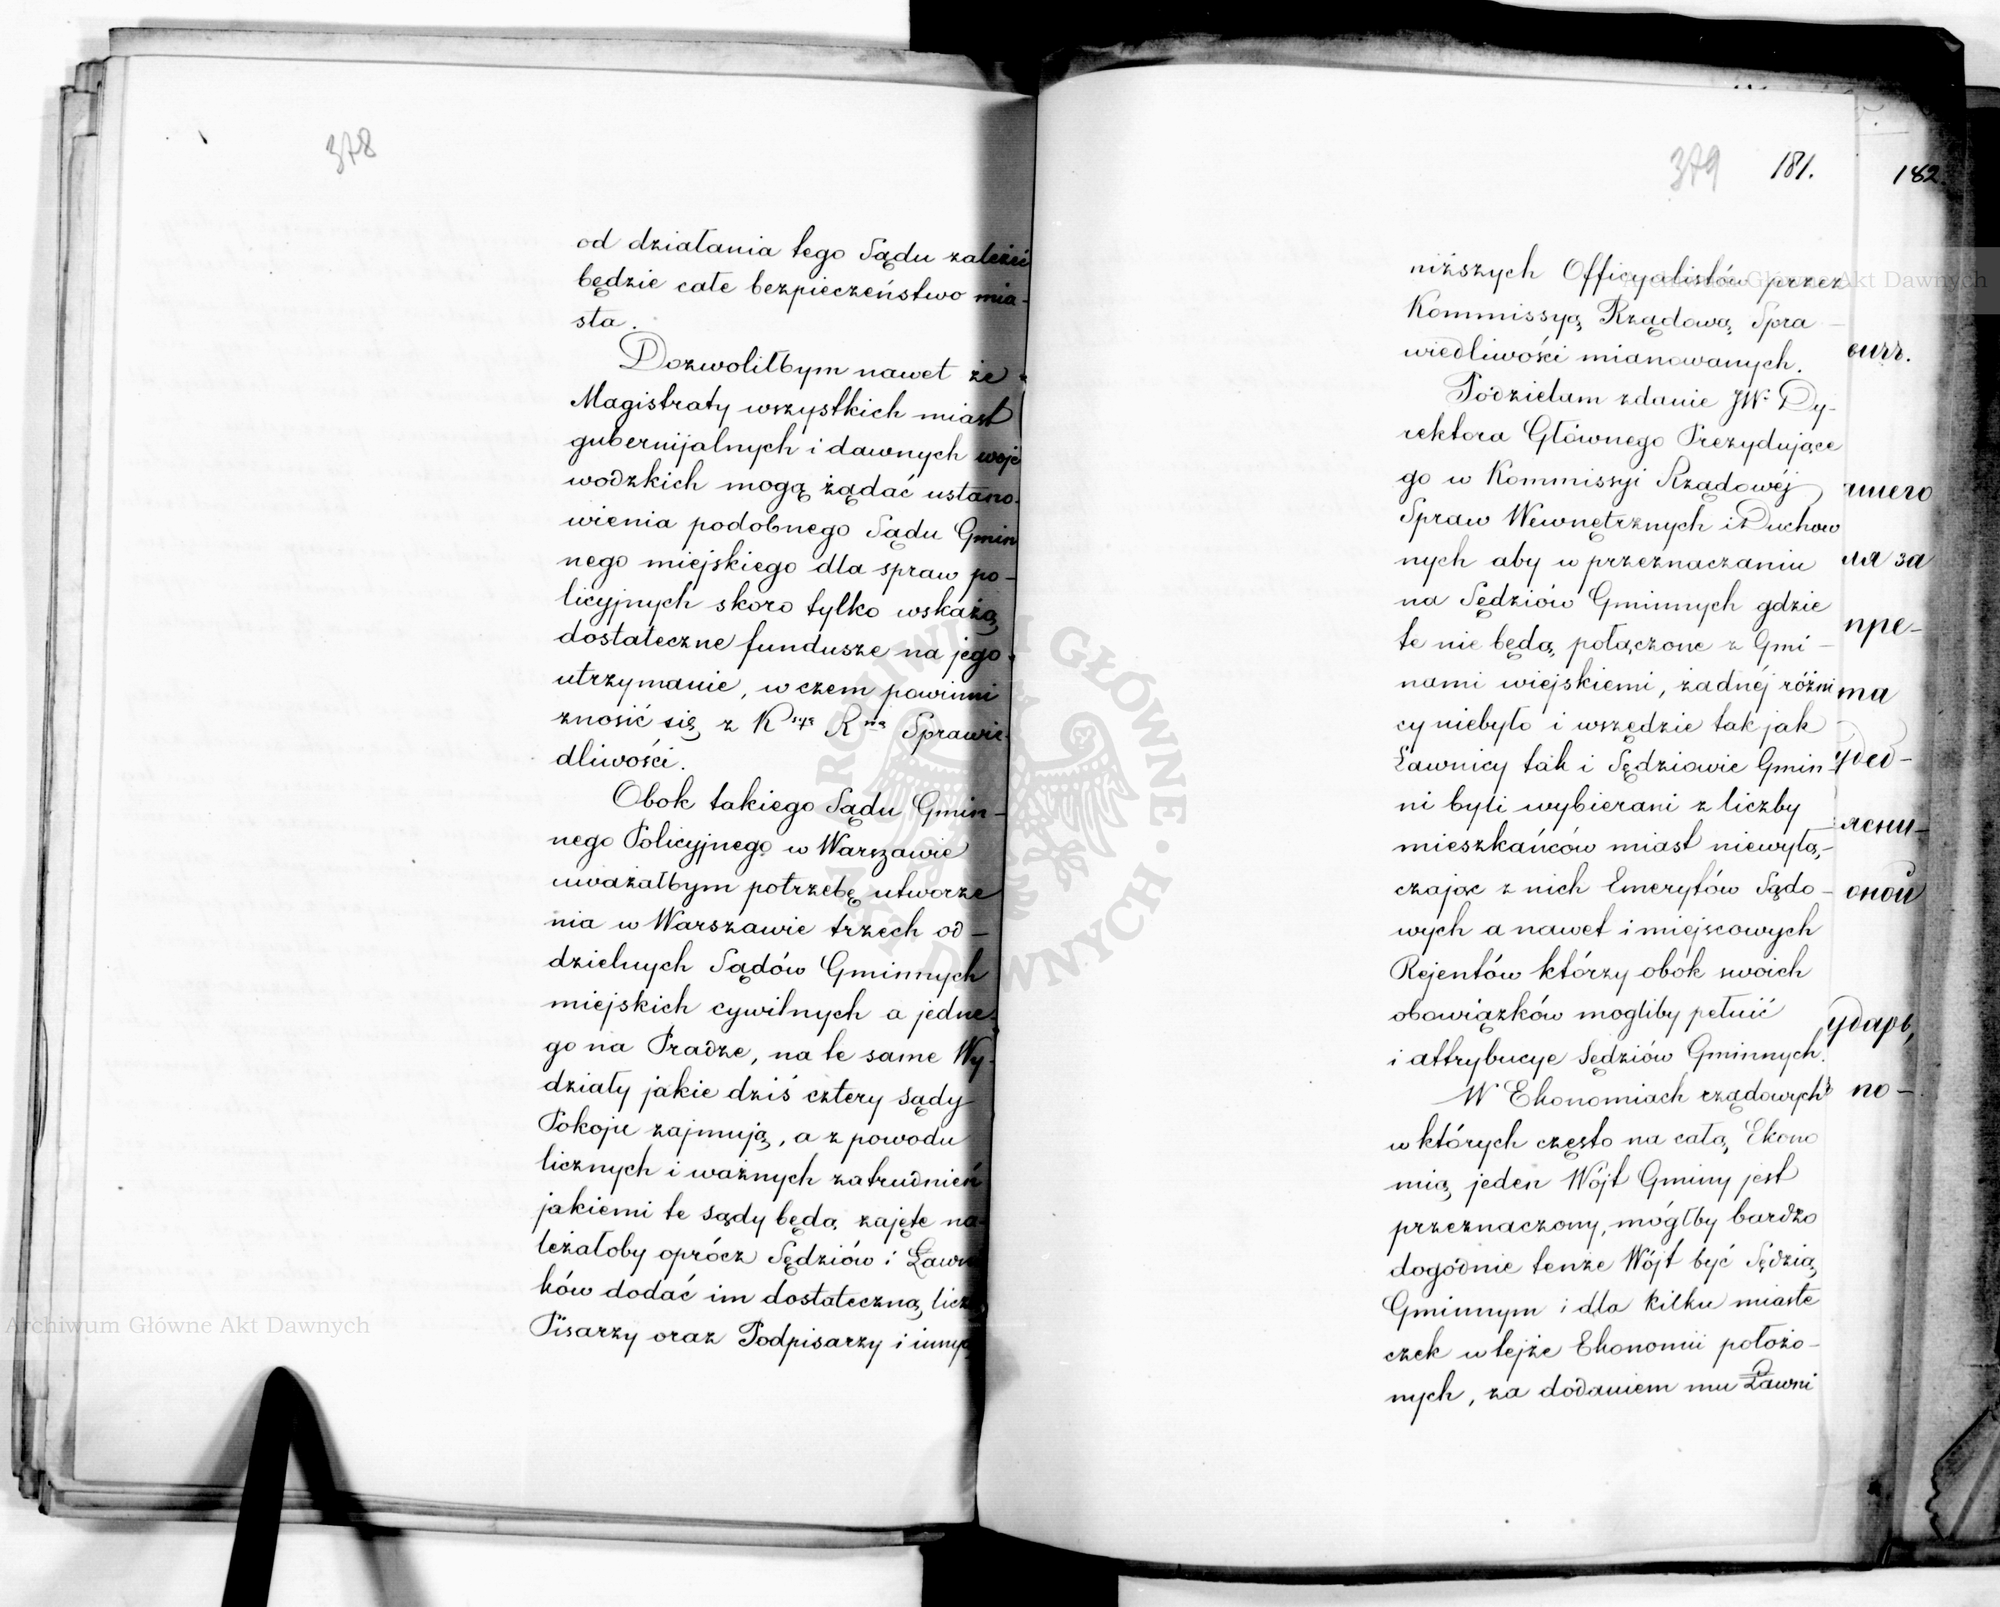 378
od działania tego Sądu zależeć
będzie całe bezpieczeństwo mia-
sta.
Dozwoliłbym nawet że
Magistraty wszystkich miast
gubernijalnych i dawnych woje
wodzkich mogą żądać ustano-
wienia podobnego Sądu Gmin
nego miejskiego dla spraw po-
licyjnych skoro tylko wskażą
dostateczne fundusze na jego
utrzymanie, w czem powinni
znosić się z K Rną Sprawie-
dliwości.
Obok takiego Sądu Gmin-
nego Policyjnego w Warszawie
uważałbym potrzebę utworze
nia w Warszawie trzech od-
dzielnych Sądów Gminnych
miejskich cywilnych a jedne-
go na Pradze, na te same Wy-
działy jakie dziś cztery sądy
Pokoju zajmują, a z powodu
licznych i ważnych zatrudnień
jakiemi te sądy będą zajęte na-
leżałoby oprócz Sędziów i Ławni
ków dodać im dostateczną liczbę
Pisarzy oraz Podpisarzy i innych
379 181.
niższych Officyalistów przez
Kommissyą Rządową Spra-
wiedliwości mianowanych.
Podzielam zdanie JW. Dy-
rektora Głównego Prezydujące
go w Kommissyi Rządowéj
Spraw Wewnętrznych i Duchow
nych aby w przeznaczaniu
na Sędziów Gminnych gdzie
te nie będą połączone z Gmi-
nami wiejskiemi, żadnéj różni
cy niebyło i wszędzie tak jak
Ławnicy tak i Sędziowie Gmin-
ni byli wybierani z liczby
mieszkańców miast niewyłą-
czając z nich Emerytów Sądo-
wych a nawet i miejscowych
Rejentów którzy obok swoich
obowiązków mogliby pełnić
i attrybucye Sędziów Gminnych.
W Ekonomiach rządowych
w których często na całą Ekono
mią jeden Wójt Gminy jest
przeznaczony, mógłby bardzo
dogodnie tenże Wójt być Sędzią
Gminnym i dla kilku miaste
czek w tejże Ekonomii położo-
nych, za dodaniem mu Ławni
182.
ля за
пре-
та
ясни-
оной
ударь,
по-
ARCHIWUM GŁÓWNE AKT DAWNYCH
Archiwum Główne Akt Dawnych
Archiwum Główne Akt Dawnych